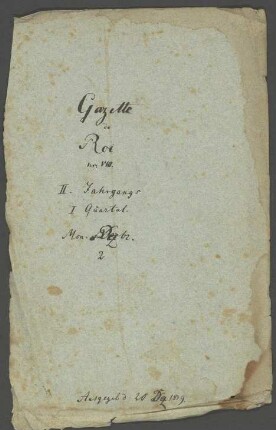 Gazette
Roi
No. VIII.
II. Jahrgangs
I Quartal.
Mon.
2
Ausgegeb'd 20 Dz 1819.